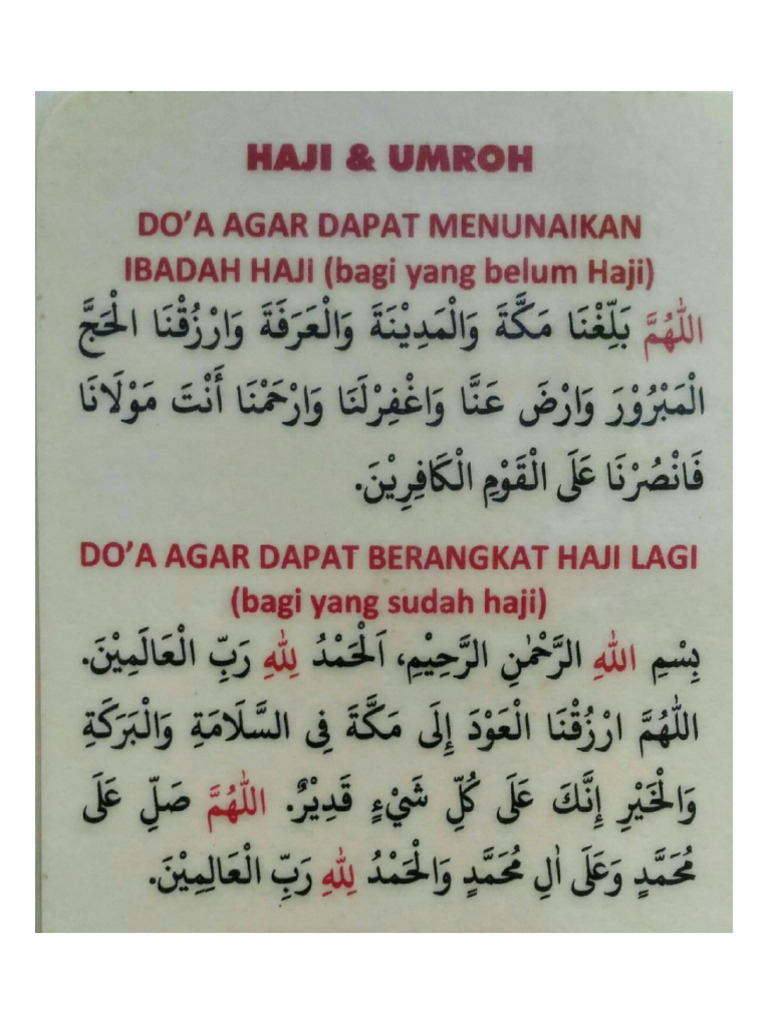 HAJI & UMROH
DO'A AGAR DAPAT MENUNAIKAN
IBADAH HAJI (bagi yang belum Haji)
اللّٰهُمَّ بَلِّغْنَا مَكَّةَ وَالْمَدِيْنَةَ وَالْعَرَفَةَ وَارْزُقْنَا الْحَجَّ
الْمَبْرُوْرَ وَارْضَ عَنَّا وَاغْفِرْلَنَا وَارْحَمْنَا أَنْتَ مَوْلَانَا
فَانْصُرْنَا عَلَى الْقَوْمِ الْكَافِرِيْنَ.
DO'A AGAR DAPAT BERANGKAT HAJI LAGI
(bagi yang sudah haji)
بِسْمِ اللهِ الرَّحْمٰنِ الرَّحِيْمِ، اَلْحَمْدُ لِلّٰهِ رَبِّ الْعَالَمِيْنَ.
اللّٰهُمَّ ارْزُقْنَا الْعَوْدَ إِلَى مَكَّةَ فِى السَّلَامَةِ وَالْبَرَكَةِ
وَالْخَيْرِ إِنَّكَ عَلَى كُلِّ شَيْءٍ قَدِيْرٌ. اللّٰهُمَّ صَلِّ عَلَى
مُحَمَّدٍ وَعَلَى اٰلِ مُحَمَّدٍ وَالْحَمْدُ لِلّٰهِ رَبِّ الْعَالِمِيْنَ.